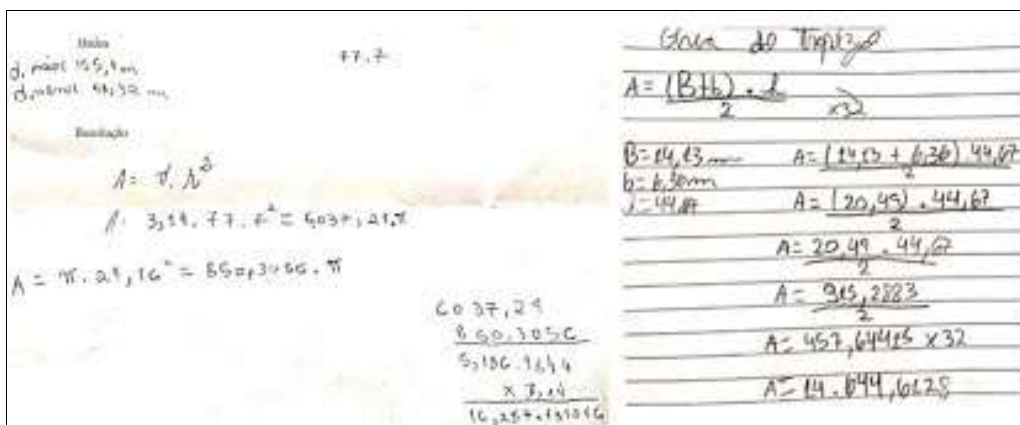 Dados
d. maior 155,4 mm
d. menor 58,32 mm
77.7
Resolução
A= π. r²
A= 3,14. 77.7² = 6037,29.π
A = π. 29,16² = 850,3056. π
6037,29
850.3056
5,186.9844
x 3,14
16,287.131016
Área do Trapézio
A= (B+b) . h
2
x32
B=14,13 mm
b= 6,36mm
A= (14,13 + 6,36) 44,67
2
A= (20,49) . 44,67
2
A= 20,49 . 44,67
2
A= 915,2883
2
A= 457,64415 x32
A= 14.644,6128